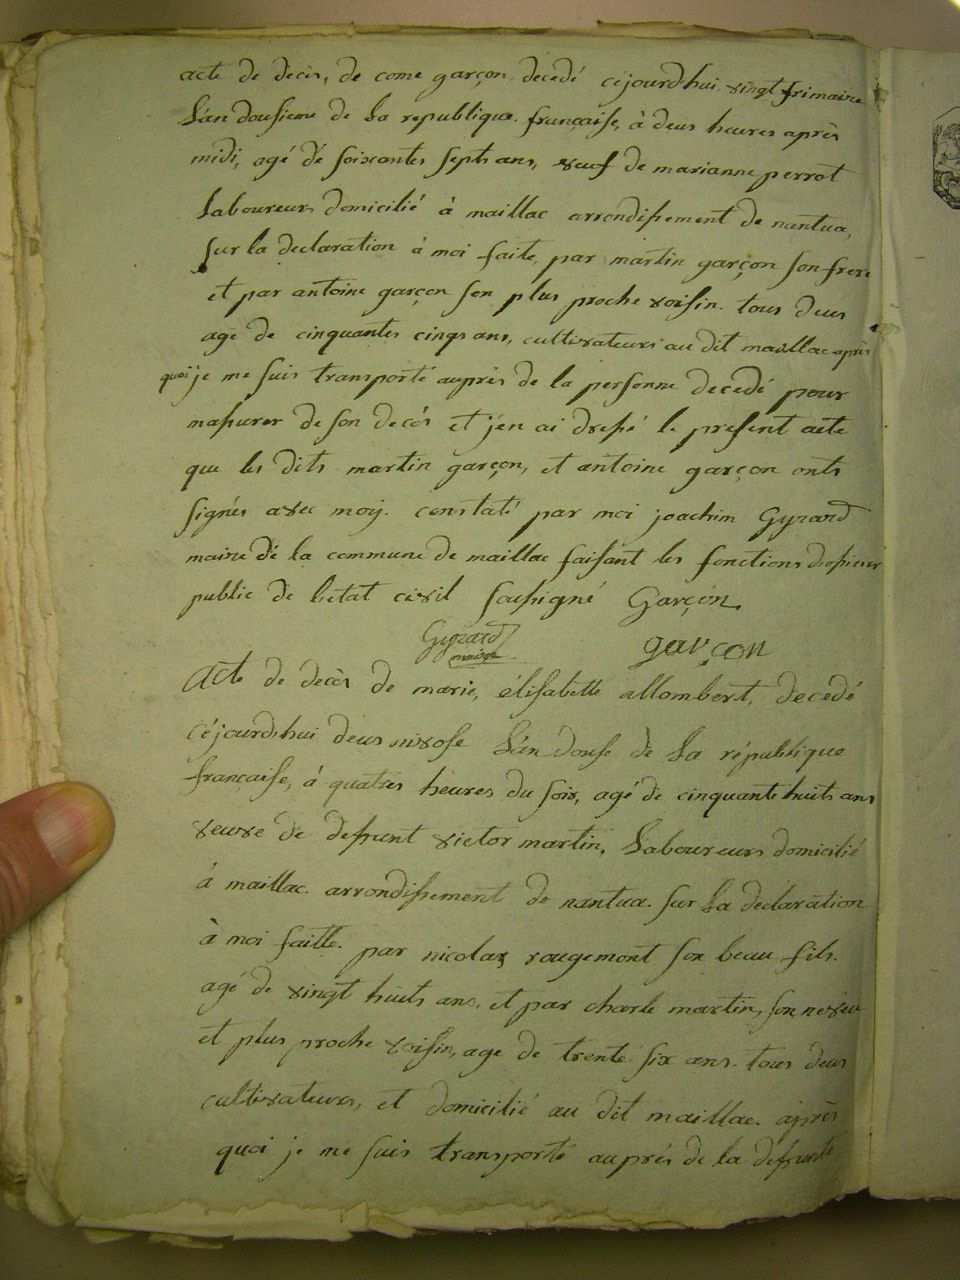 acte de decès, de come garçon decedé cejourdhui vingt frimaire
L'an dousieme de La republique française, à deus heures après
midi, agé dé soixantes septs ans, veuf de marianne perrot
Laboureurs domicilié à maillac arrondissement de nantua,
sur la declaration à moi faite, par martin garçon son frere
et par antoine garçon son plus proche voisin. tous deus
agé de cinquantes cinqs ans, cultivateurs au dit maillac après
quoi je me suis transporté auprès de la personne decedé pour
m'assurer de son decés et j'en ai dressé le present acte
que les dits martin garçon, et antoine garçon onts
signés avec moy. constaté par moi joachim Gyrard
maire dé la commune de maillac faisant les fonctions d'officier
public de l'etat civil soussigné Garçon.
Gyrard garçon
maire
Acte de decès de marie, élisabette allombert, decédé
céjourd'hui deus nivose L'an douse de La république
française, à quatres heures du soir, agé de cinquante huits ans
veuve de deffunt victor martin, Laboureurs domicilié
à maillac. arrondissement de nantua. sur La declaration
à moi faitte. par nicolas rougemont son beau fils.
agé de vingt huits ans. et par charle martin, son neveu
et plus proche voisin, age de trente six ans. tous deus
cultivateurs, et domicilié au dit maillac. après
quoi je me suis transporté auprès de la deffunte